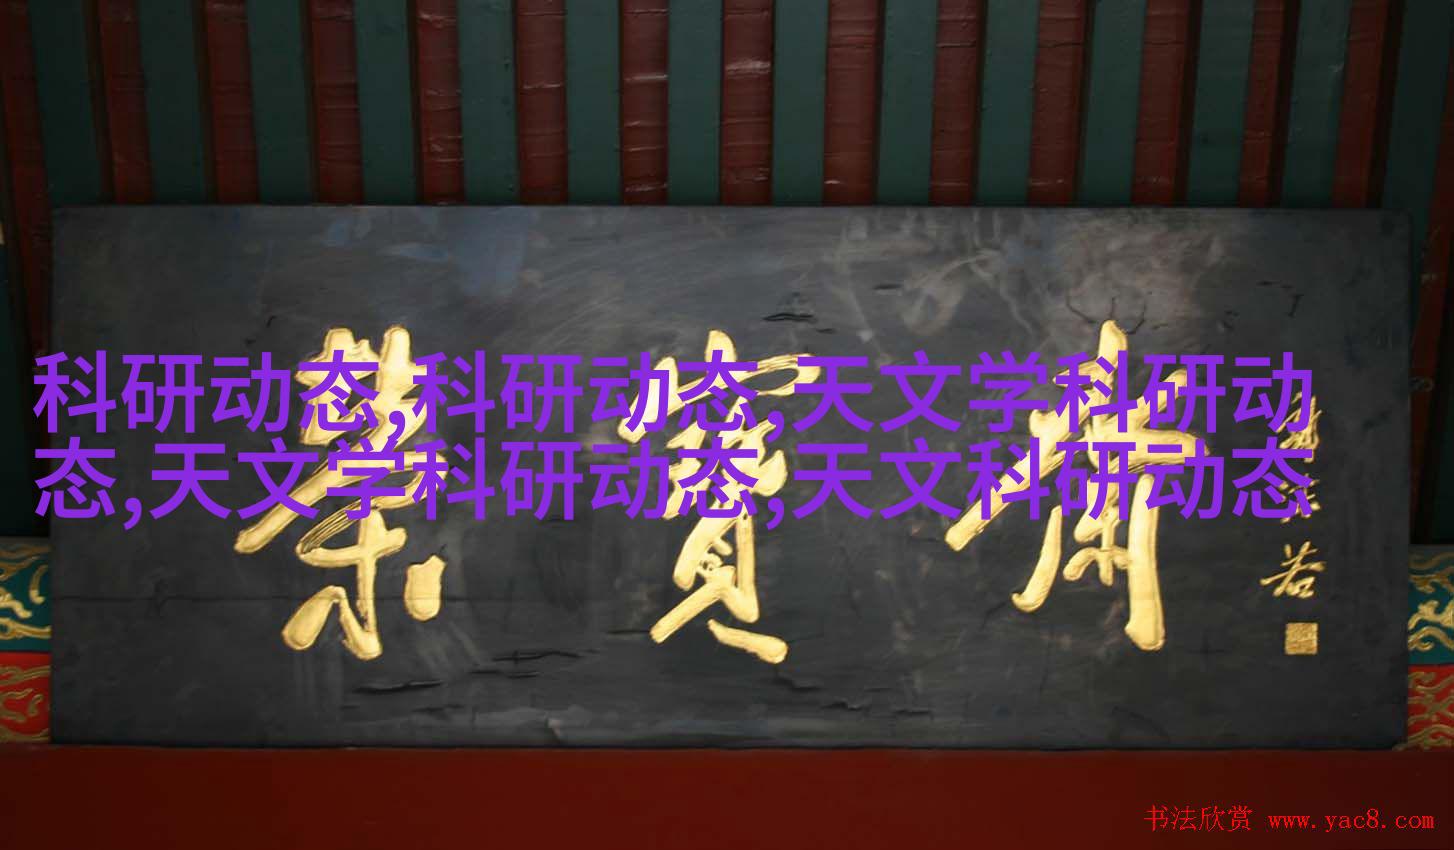 科研动态,科研动态,天文学科研动
态,天文学科研动态,天文科研动态
荣宝斋
郭沫若
书法欣赏 www.yac8.com